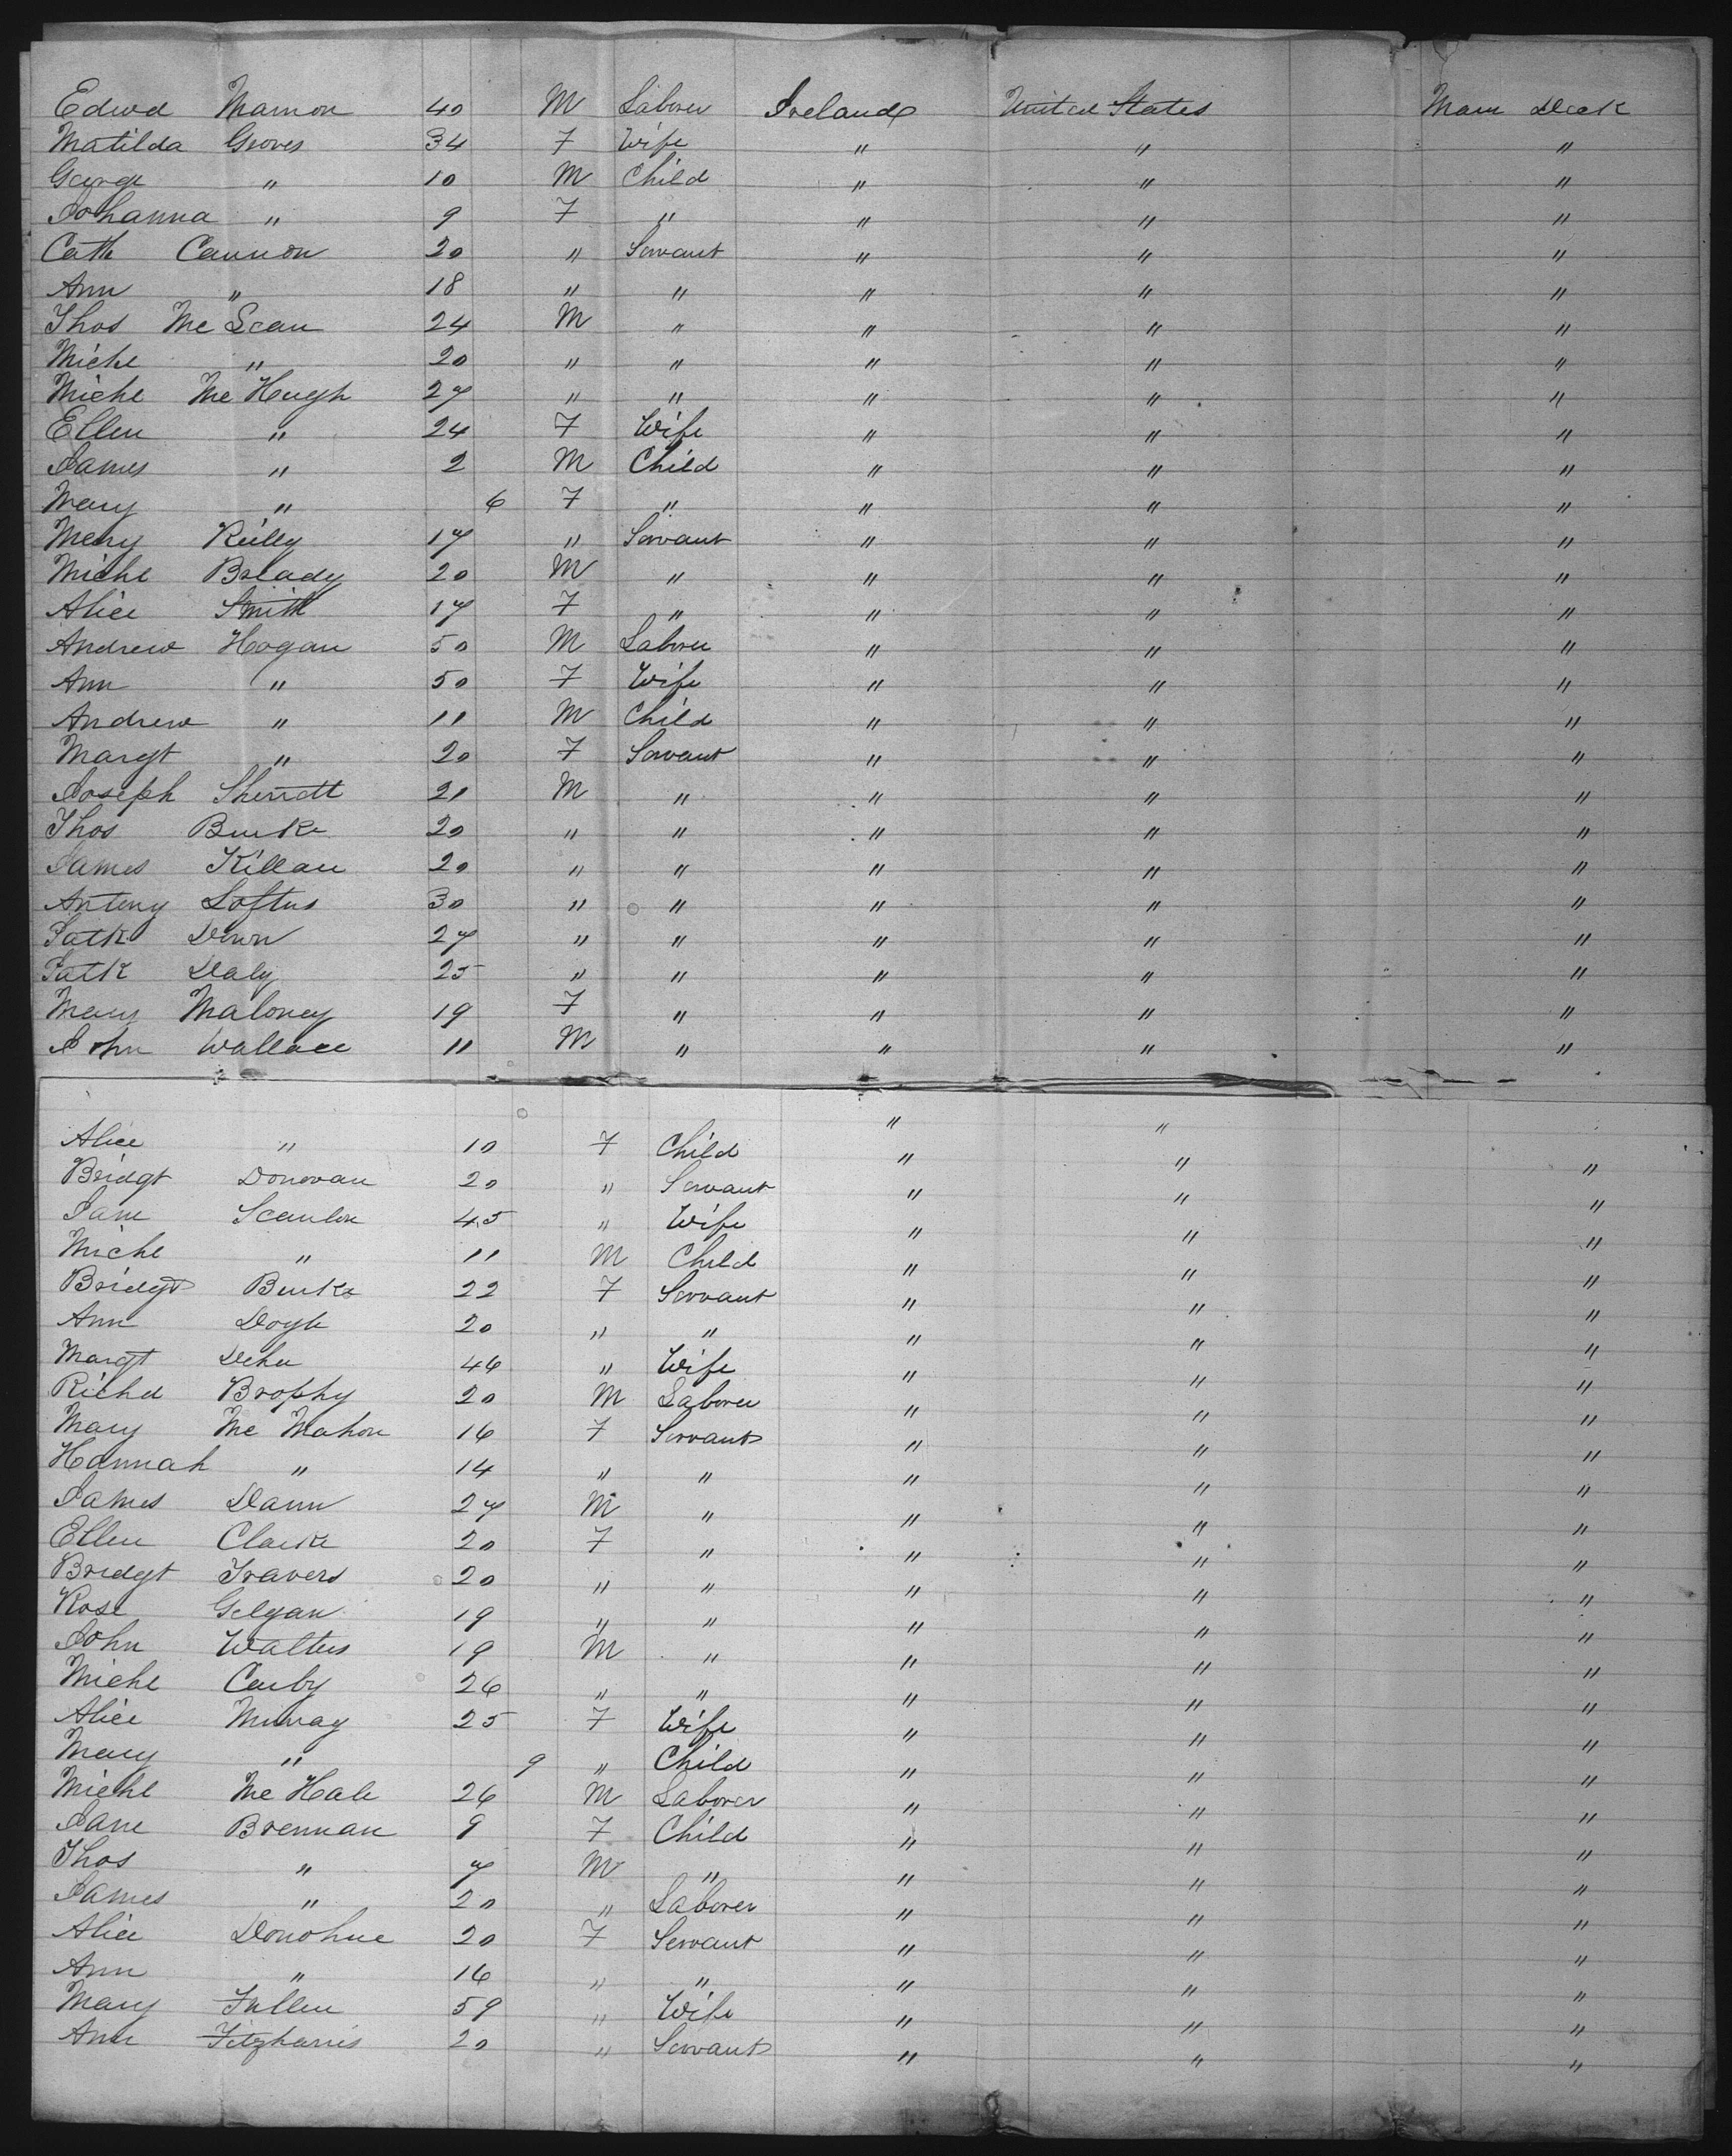 Edwd Mannon 40 M Laborer Ireland United States Main Deck
Matilda Groves 34 F Wife " " "
George " 10 M Child " " "
Johanna " 9 F " " " "
Cath Cannon 20 " Servant " " "
Ann " 18 " " " " "
Thos Mc Lean 24 M " " " "
Michl " 20 " " " " "
Michl Mc Hugh 27 " " " " "
Ellen " 24 F Wife " " "
James " 2 M Child " " "
Mary " 6 F " " " "
Mary Reilly 17 " Servant " " "
Michl Brlady 20 M " " " "
Alice Smith 17 F " " " "
Andrew Hogan 50 M Laborer " " "
Ann " 50 F Wife " " "
Andrew " 11 M Child " " "
Margt " 20 F Servant " " "
Joseph 21 M " " " "
Thos Burke 20 " " " " "
James Killan 20 " " " " "
Antony Loftus 30 " " " " "
Patk 27 " " " " "
Patk Daly 25 " " " " "
Mary Maloney 19 F " " " "
John Wallace 11 M " " " "
" "
Alice " 10 F Child " " "
Bridgt Donovan 20 " Servant " " "
Jane Scanlon 45 " Wife " " "
Michl " 11 M Child " " "
Bridgt Burke 22 F Servant " " "
Ann Doyle 20 " " " " "
Margt 46 " Wife " " "
Richd Brophy 20 M Laborer " " "
Mary Mc Mahon 16 F Servant " " "
Hannah " 14 " " " " "
James Dann 27 M " " " "
Ellen Clarke 20 F " " " "
Bridgt Travers 20 " " " " "
Rose Gilgan 19 " " " " "
John Walters 19 M " " " "
Michl 26 " " " " "
Alice Murray 25 F Wife " " "
Mary " 9 " Child " " "
Michl Mc Hale 26 M Laborer " " "
Jane Brennan 9 F Child " " "
Thos " 7 M " " " "
James " 20 " Laborer " " "
Alice Donohue 20 F Servant " " "
Ann " 16 " " " " "
Mary Fullen 59 " Wife " " "
Ann Fitzharris 20 " Servant " " "